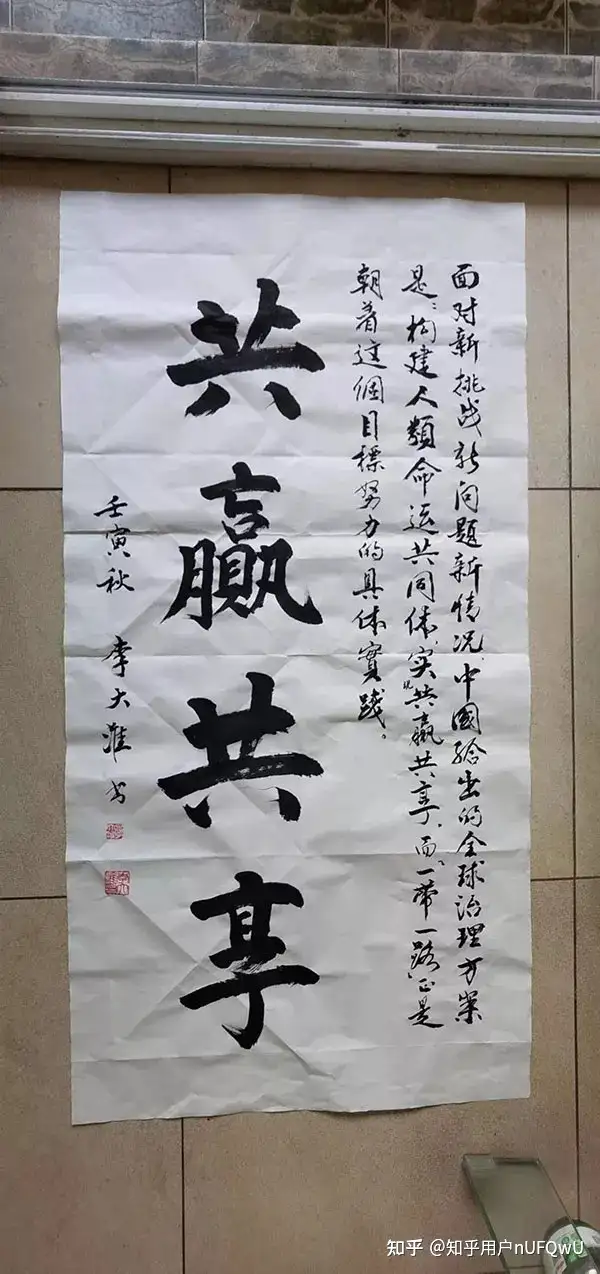 面对新挑战新问题新情况,中國给出的全球治理方案
是:构建人類命运共同体,实现共赢共享。而“一带一路”正是
朝着这個目標努力的具体實践。
共赢共享
壬寅秋 李大淮书
知乎 @知乎用户nUFQwU